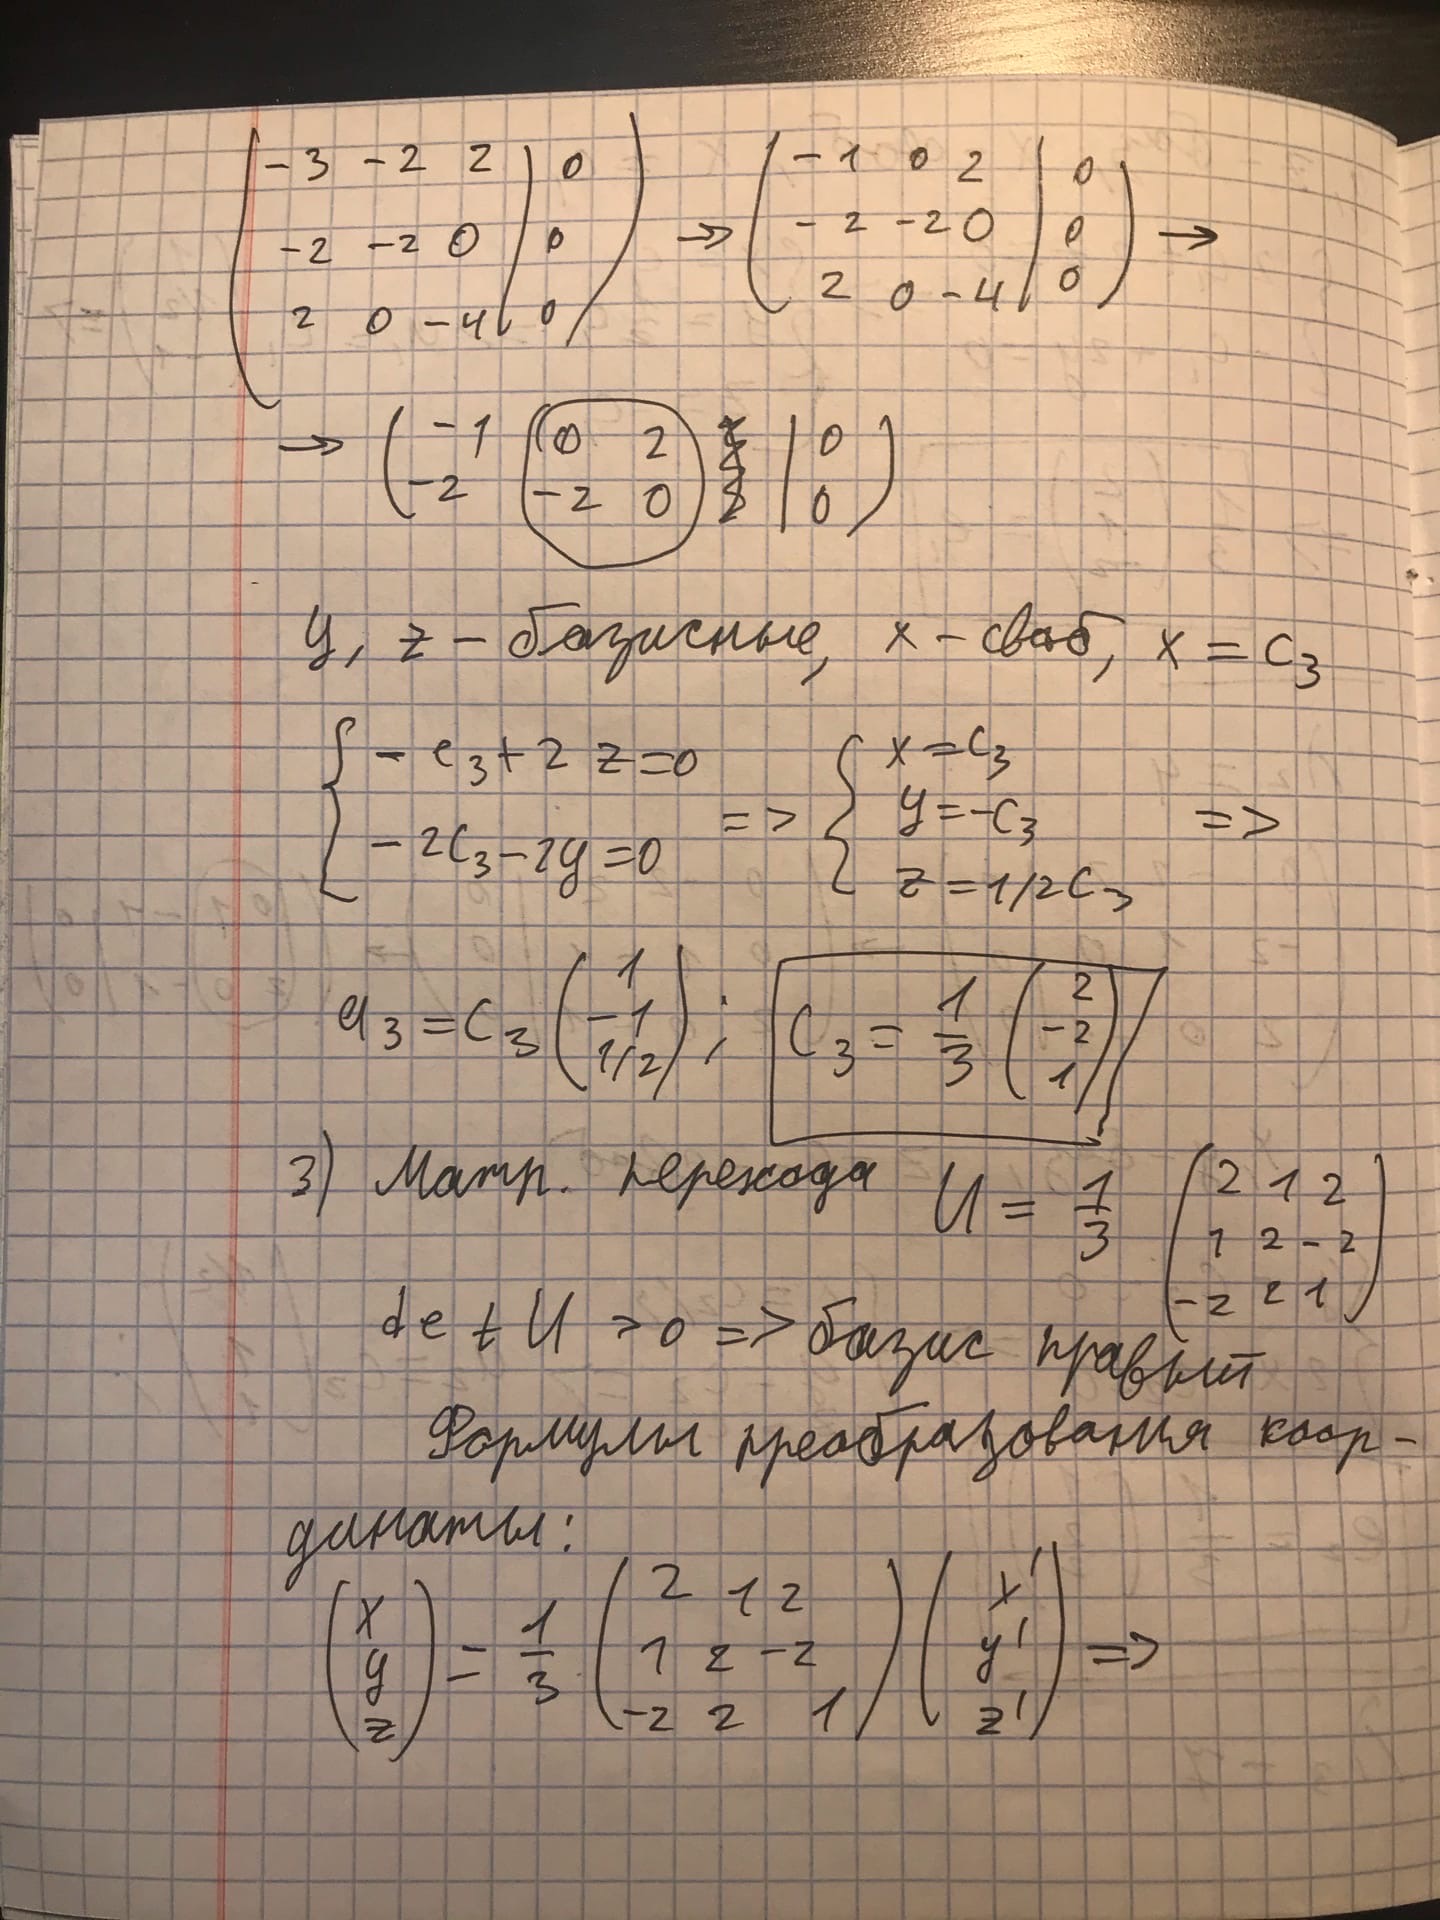 ( -3 -2 2 | 0 ) → ( -1 0 2 | 0 ) →
( -2 -2 0 | 0 ) ( -2 -2 0 | 0 )
( 2 0 -4 | 0 ) ( 2 0 -4 | 0 )
→ ( -1 0 2 | 0 )
( -2 -2 0 | 0 )
y, z - базисные, x - своб, x = C₃
{ - C₃ + 2 z = 0 => { x = C₃
{ - 2C₃ - 2y = 0 { y = -C₃ =>
{ z = 1/2 C₃
e₃ = C₃ ( 1 -1 1/2 ) ; C₃ = 1/3 ( 2 -2 1 )
3) Матр. перехода U = 1/3 ( 2 1 2
1 2 -2
-2 2 1 )
det U > 0 => базис правый
Формулы преобразования коор-
динаты:
( x y z ) = 1/3 ( 2 1 2
1 2 -2
-2 2 1 ) ( x' y' z' ) =>